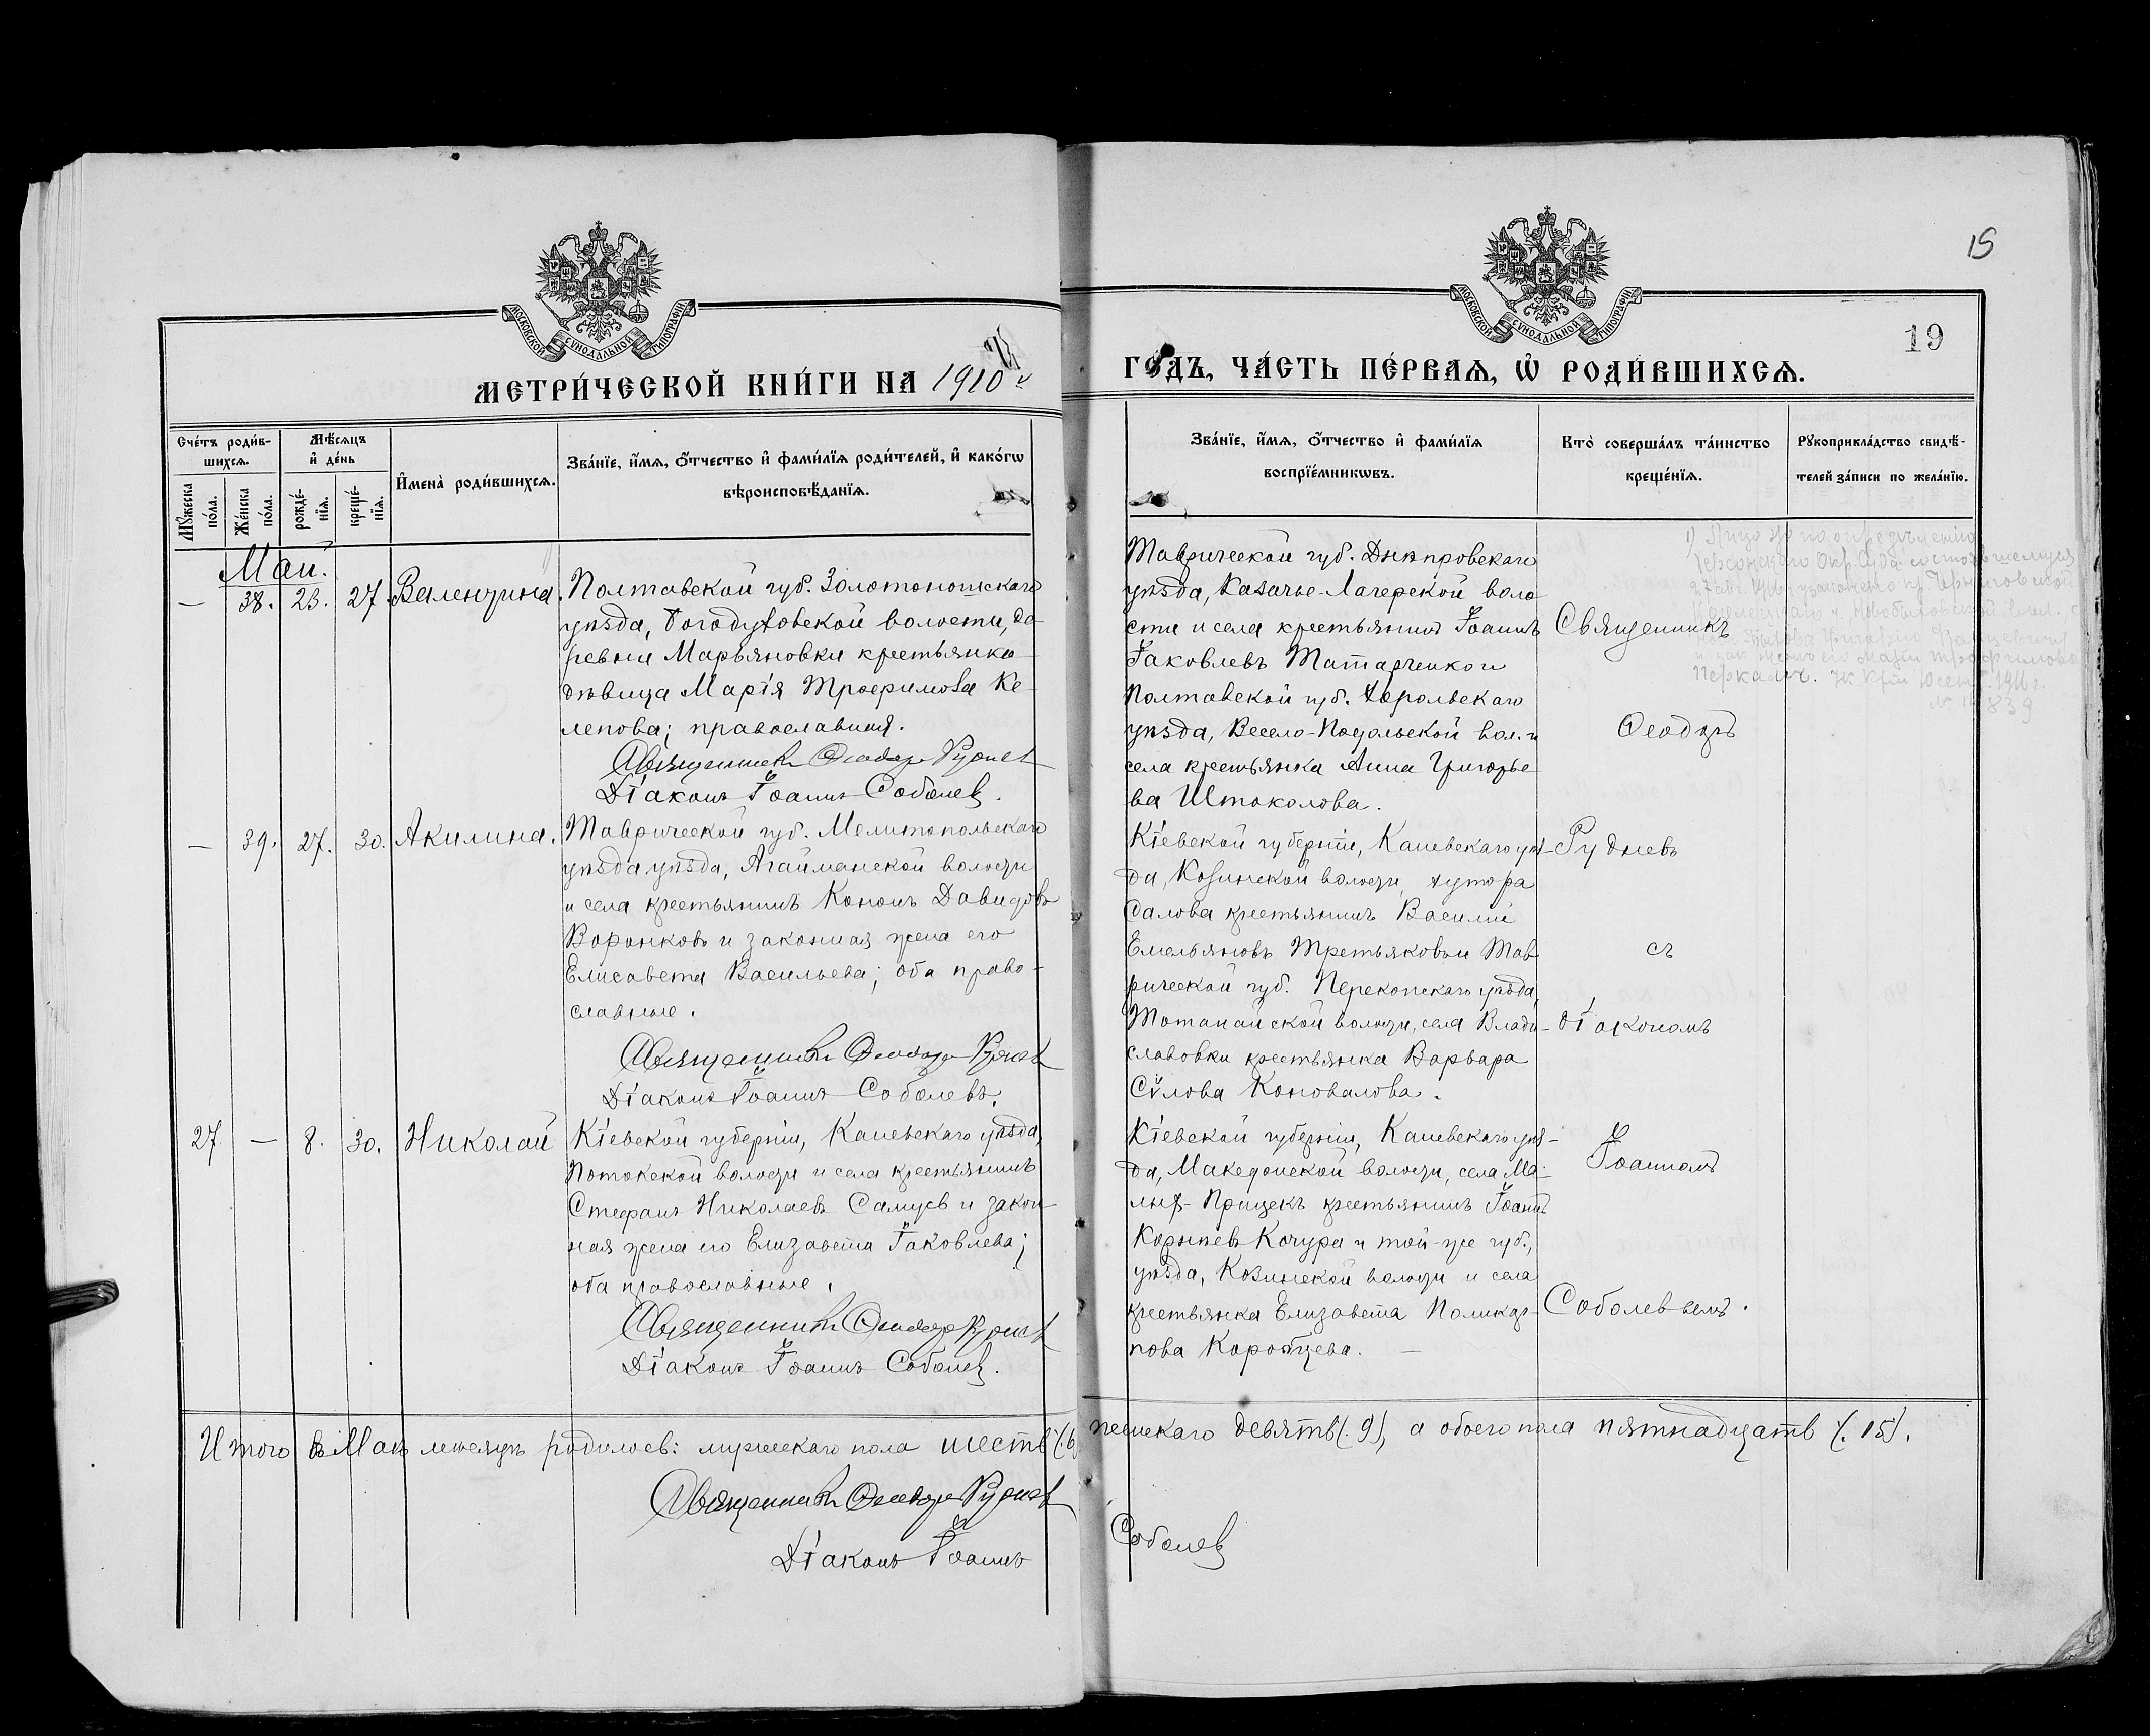 15
19
МОСКОВСКОЙ СУНОДАЛЬНОЙ ТИПОГРАФІИ
МОСКОВСКОЙ СУНОДАЛЬНОЙ ТИПОГРАФІИ
МЕТРИ́ЧЕСКОЙ КНИ́ГИ НА 1910й
ГОДЪ, ЧА́СТЬ ПЕ́РВАЯ, Ѿ РОДИ́ВШИХСЯ.
Сче́тъ роди́в-
шихся.
Мѣ́сяцъ
и҆ де́нь
Мꙋ́жеска
по́ла.
Же́нска
по́ла.
рожде́-
нїя.
креще́-
нїя.
И҆мена̀ роди́вшихся.
Зва́нїе, и҆́мя, ѻ҆́тчество и҆ фами́лїя роди́телей, и҆ како́гѡ
вѣроисповѣ́данїя.
Зва́нїе, и҆́мя, ѻ҆́тчество и҆ фами́лїя
воспрїе́мникѡвъ.
Кто̀ соверша́лъ та́инство
креще́нїя.
Рꙋкоприкла́дство свидѣ́-
телей за́писи по жела́нїю.
Май.
— 38. 23. 27. Валентина.
Полтавской губ. Золотоношскаго
уѣзда, Богодуховской волости, де-
ревни Марьяновки крестьянка
дѣвица Марія Трофимова Ке-
лепова; православная.
Священникъ Ѳеодоръ Рудневъ
Діаконъ Іоаннъ Соболевъ.
Таврической губ. Днѣпровскаго
уѣзда, Казачье-Лагерской воло
сти и села крестьянинъ Іоаннъ
Іаковлевъ Татарченко и
Полтавской губ. Хорольскаго
уѣзда, Весело-Подольской вол. и
села крестьянка Анна Григорье
ва Штоколова.
— 39. 27. 30. Акилина.
Таврической губ. Мелитопольскаго
уѣзда уѣзда, Агайманской волости
и села крестьянинъ Кононъ Давидовъ
Воронковъ и законная жена его
Елисавета Васильева; оба право-
славные.
Священникъ Ѳеодоръ Рудневъ
Діаконъ Іоаннъ Соболевъ.
Кіевской губерніи, Каневскаго уѣз-
да, Козинской волости, хутора
Салова крестьянинъ Василій
Емельяновъ Третьяковъ и Тав
рической губ. Перекопскаго уѣзда,
села Влади-
славовки крестьянка Варвара
Сѵлова Коновалова.
27. — 8. 30. Николай
Кіевской губерніи, Каневскаго уѣзда,
Потокской волости и села крестьянинъ
Стефанъ Николаевъ Самусь и закон-
ная жена его Елизавета Іаковлева;
оба православные.
Священникъ Ѳеодоръ Рудневъ
Діаконъ Іоаннъ Соболевъ.
Кіевской губерніи, Каневскаго уѣз-
да, Македонской волости, села Ма-
лыя-Прицекъ крестьянинъ Іоаннъ
Корнѣевъ Кочура и той-же губ.,
уѣзда, Козинской волости и села
крестьянка Елизавета Поликар-
пова Коробцева. —
Священникъ
Ѳеодоръ
Рудневъ
съ
діакономъ
Іоанномъ
Соболевымъ.
Итого въ Маѣ мѣсяцѣ родилось: мужескаго пола шесть (6) женскаго девять (9), а обоего пола пятнадцать (15).
Священникъ Ѳеодоръ Рудневъ
Діаконъ Іоаннъ Соболевъ